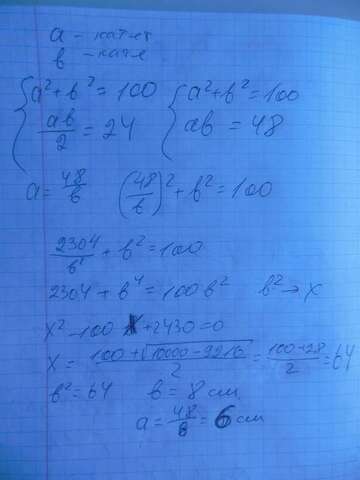 a - катет
b - кате
{ a² + b² = 100 { a² + b² = 100
ab/2 = 24 ab = 48
a = 48/b (48/b)² + b² = 100
2304/b² + b² = 100
2304 + b⁴ = 100b² b² → x
x² - 100x + 2430 = 0
x = (100 + √(10000 - 9216))/2 = (100 + 28)/2 = 64
b² = 64 b = 8 см
a = 48/8 = 6 см